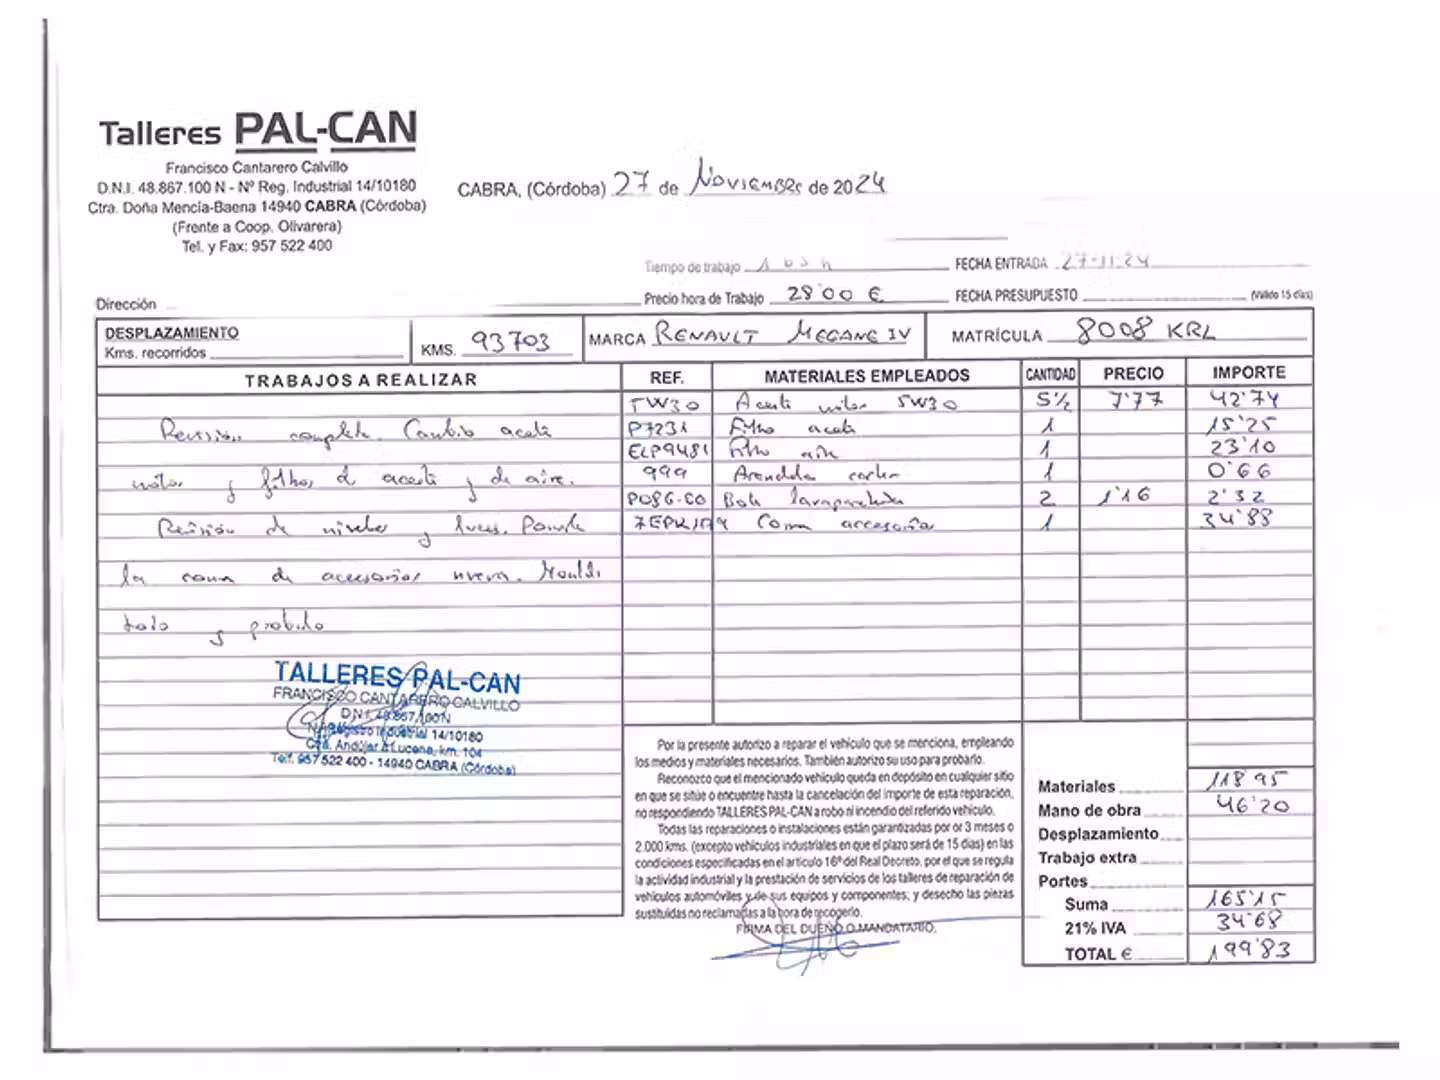 Talleres PAL-CAN
Francisco Cantarero Calvillo
D.N.I. 48.867.100 N - Nº Reg. Industrial 14/10180
Ctra. Doña Mencía-Baena 14940 CABRA (Córdoba)
(Frente a Coop. Olivarera)
Tel. y Fax: 957 522 400
CABRA, (Córdoba) 27 de Noviembre de 2024
Tiempo de trabajo
FECHA ENTRADA 27-11-24
Dirección
Precio hora de Trabajo 28'00 €
FECHA PRESUPUESTO (Válido 15 días)
DESPLAZAMIENTO
Kms. recorridos
KMS. 93703
MARCA RENAULT MEGANE IV
MATRÍCULA 8008 KRL
TRABAJOS A REALIZAR REF. MATERIALES EMPLEADOS CANTIDAD PRECIO IMPORTE
5W30 Aceite motor 5W30 5½ 7'77 42'74
Revisión completa. Cambio aceite
P7231 Filtro aceite 1 15'25
ELP9481 Filtro aire 1 23'10
motor y filtros d aceite y de aire.
999 Arandela carter 1 0'66
P086-CO Bote lavaparabrisas 2 1'16 2'32
Revisión de niveles y luces. Ponerle
Correa accesorios 1 34'88
la correa de accesorios nueva. Montarlo
todo y probarlo
TALLERES PAL-CAN
FRANCISCO CANTARERO CALVILLO
D.N.I. 48.867.100N
Nº Registro Industrial 14/10180
Ctra. Andújar a Lucena, km. 104
Telf. 957 522 400 - 14940 CABRA (Córdoba)
Por la presente autorizo a reparar el vehículo que se menciona, empleando
los medios y materiales necesarios. También autorizo su uso para probarlo.
Reconozco que el mencionado vehículo queda en depósito en cualquier sitio
en que se sitúe o encuentre hasta la cancelación del importe de esta reparación,
no respondiendo TALLERES PAL-CAN a robo ni incendio del referido vehículo.
Todas las reparaciones o instalaciones están garantizadas por or 3 meses o
2.000 kms. (excepto vehículos industriales en que el plazo será de 15 días) en las
condiciones especificadas en el artículo 16º del Real Decreto, por el que se regula
la actividad industrial y la prestación de servicios de los talleres de reparación de
vehículos automóviles y de sus equipos y componentes, y desecho las piezas
sustituidas no reclamadas a la hora de recogerlo.
FIRMA DEL DUEÑO O MANDATARIO.
Materiales 118'95
Mano de obra 46'20
Desplazamiento
Trabajo extra
Portes
Suma 165'15
21% IVA 34'68
TOTAL € 199'83